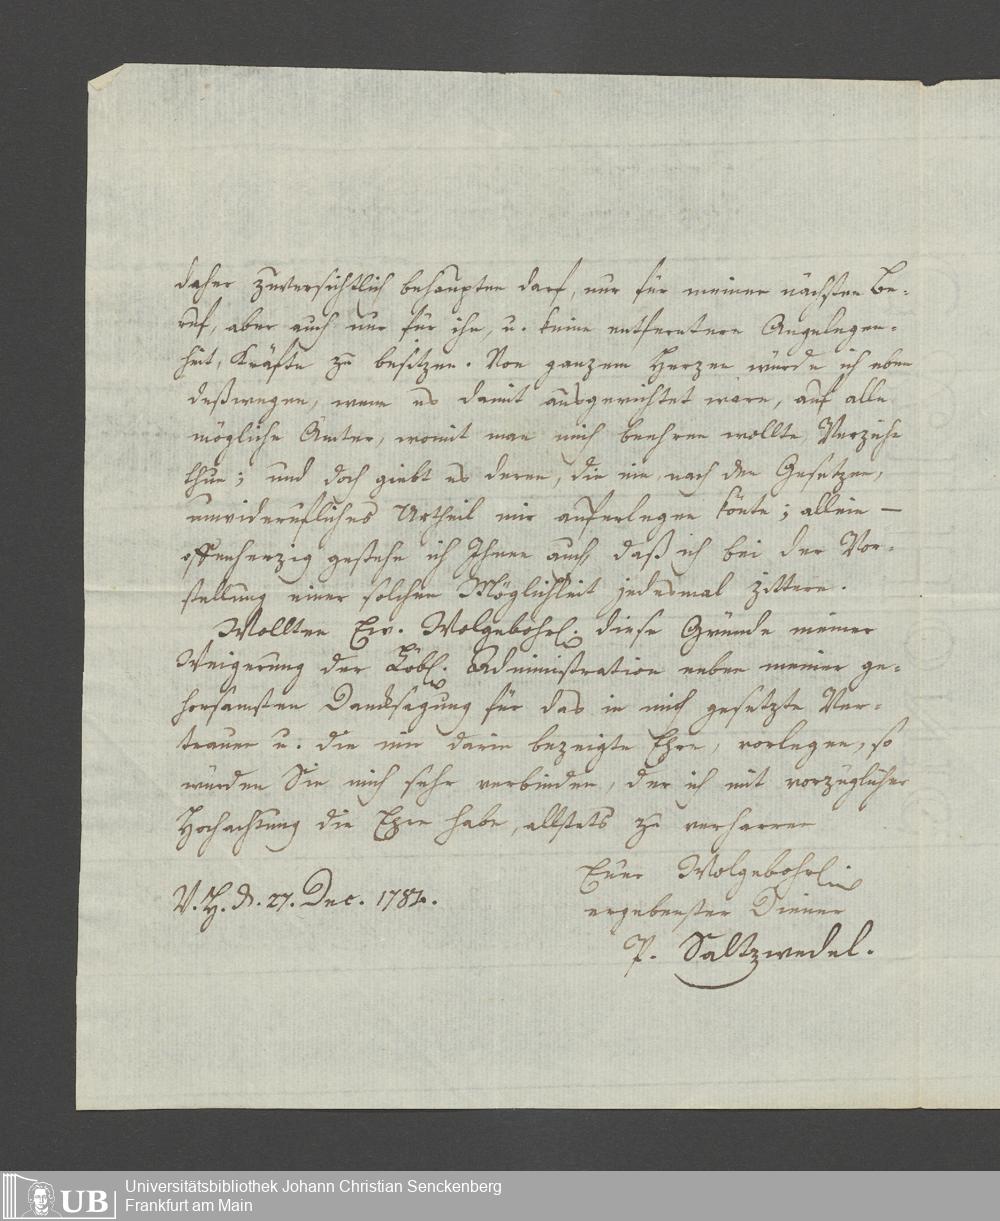 daher zuversichtlich behaupten darf, nur für meinen nächsten Be-
ruf, aber auch nur für ihn, u. keine entferntere Angelegen-
heit, Kräfte zu besitzen. Von ganzem Herzen würde ich eben
deßwegen, wenn es damit ausgerichtet wäre, auf alle
mögliche Ämter, womit man mich beehren wollte, Verzicht
thun; und doch giebt es deren, die ein, nach den Gesetzen,
unwiderrufliches Urtheil mir auferlegen könte; allein —
offenherzig gestehe ich Ihnen auch, daß ich bei der Vor-
stellung einer solchen Möglichkeit jedesmal zittere.
Wollten Ew. Wolgebohrl. diese Gründe meiner
Weigerung der Löbl. Administration neben meiner ge-
horsamsten Danksagung für das in mich gesetzte Ver-
trauen u. die mir darin bezeigte Ehre, vorlegen, so
würden Sie mich sehr verbinden, der ich mit vorzüglicher
Hochachtung die Ehre habe, allstets zu verharren
Euer Wolgebohrl
V. H. d. 27. Dec. 1784.
ergebenster Diener
P. Saltzwedel.
UB
Universitätsbibliothek Johann Christian Senckenberg
Frankfurt am Main